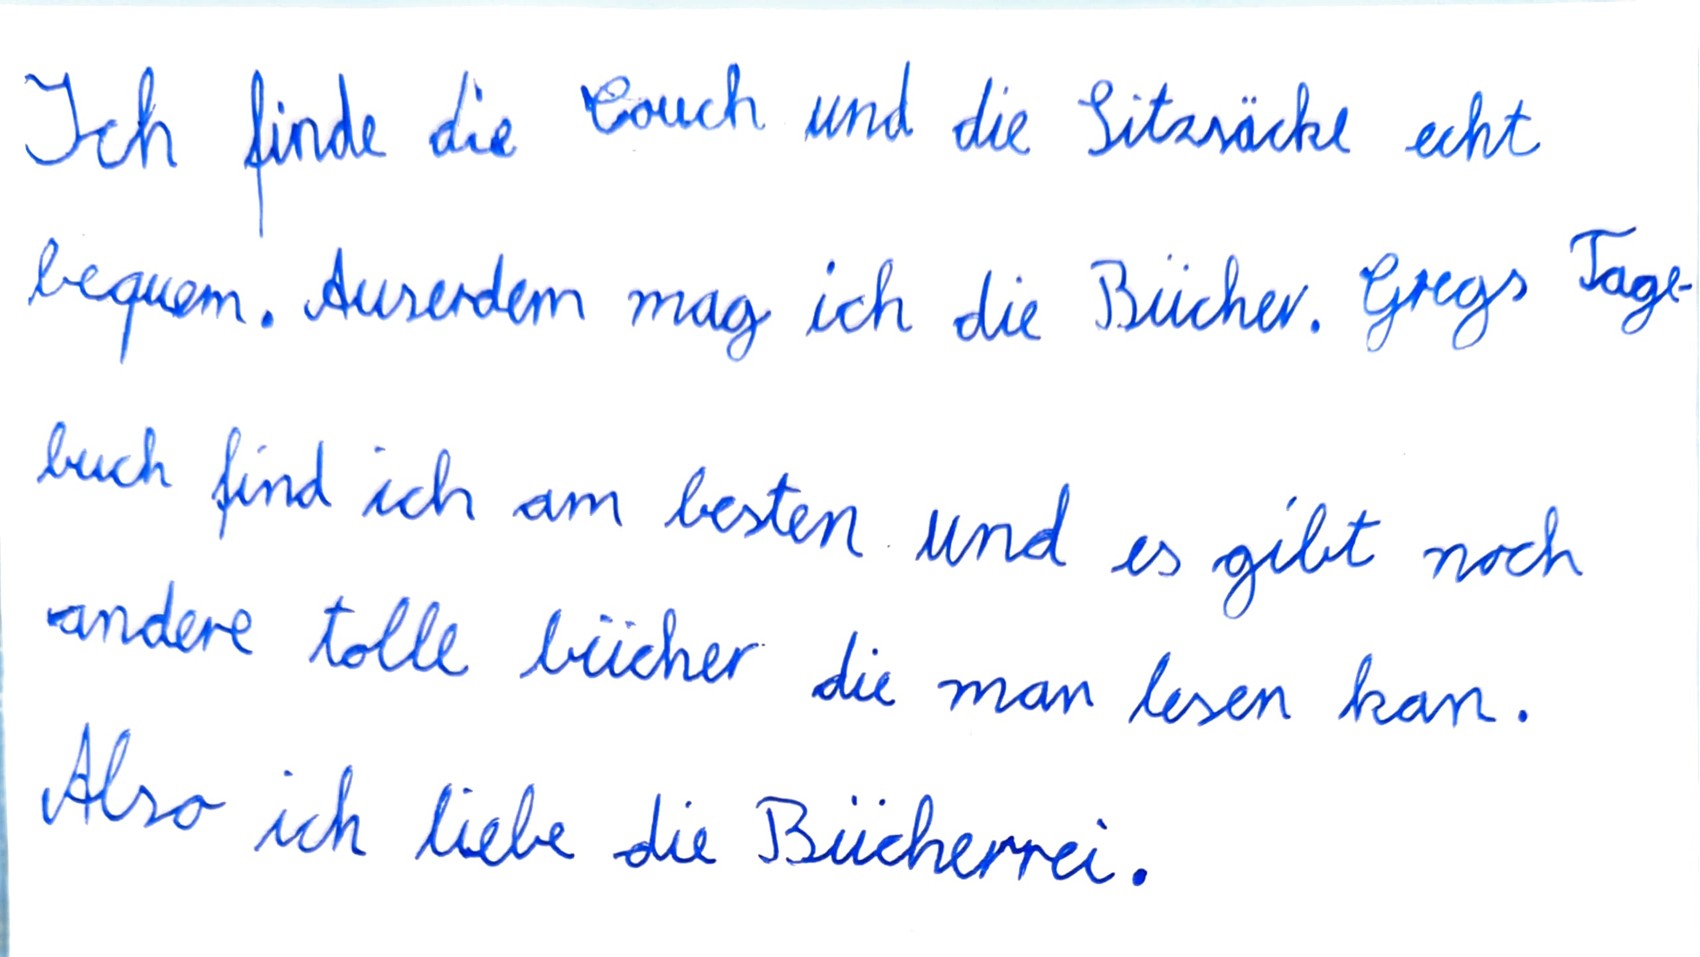 Ich finde die Couch und die Sitzsäcke echt
bequem. Auserdem mag ich die Bücher. Gregs Tage-
buch find ich am besten und es gibt noch
andere tolle bücher die man lesen kan.
Also ich liebe die Bücherrei.